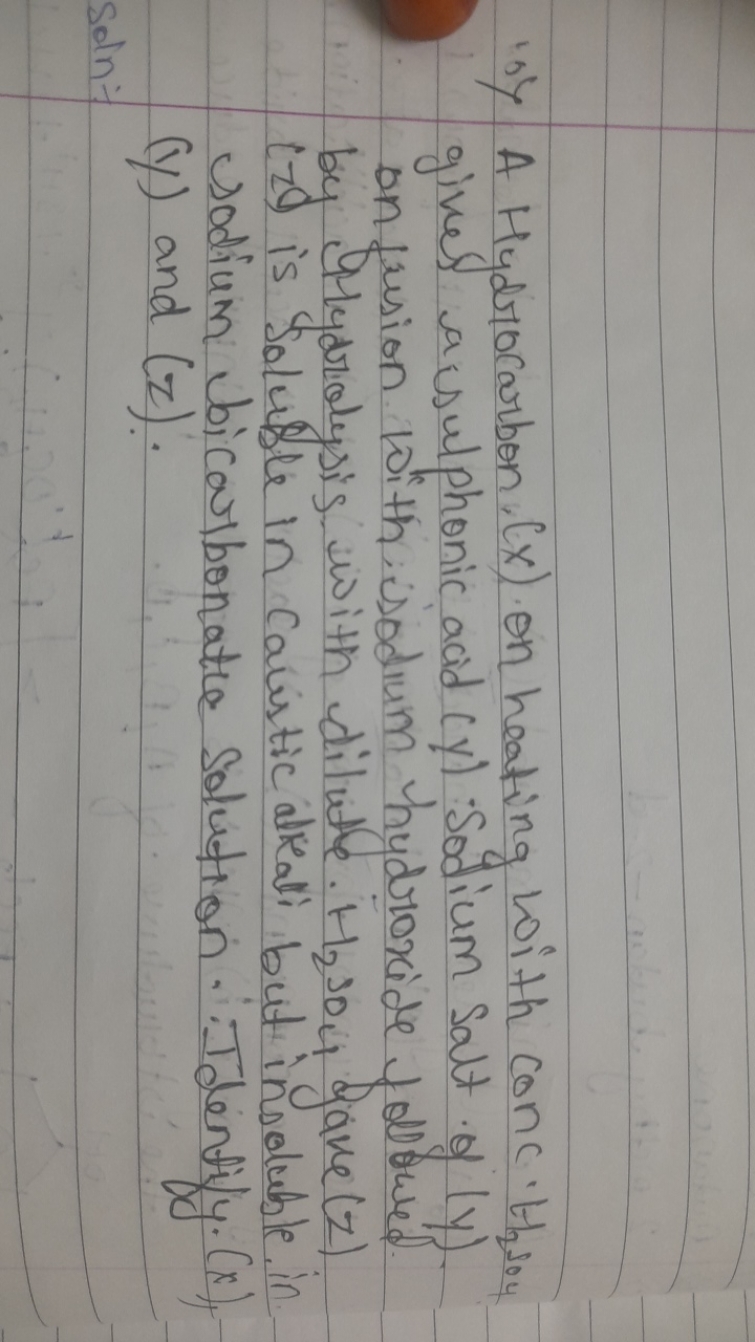 10) A Hydrocarbon (x) on heating with conc. H₂SO₄
gives a sulphonic acid (y). Sodium Salt of (y)
on fusion with sodium hydroxide followed
by Hydrolysis with dilute H₂SO₄ gave (z)
(z) is Soluble in Caustic alkali but insoluble in
sodium bicarbonate Solution. Identify (x),
(y) and (z).
Soln:-